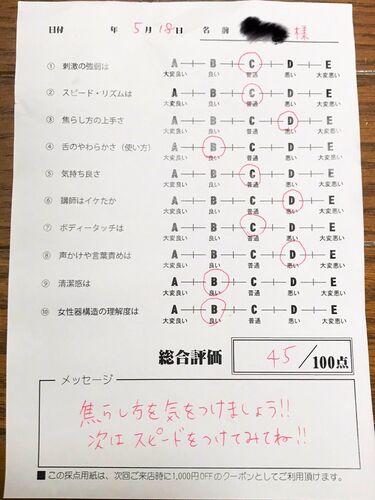 日付 年 5月18日 名前 様
① 刺激の強弱は A B C D E
大変良い 良い 普通 悪い 大変悪い
② スピード・リズムは A B C D E
大変良い 良い 普通 悪い 大変悪い
③ 焦らし方の上手さ A B C D E
大変良い 良い 普通 悪い 大変悪い
④ 舌のやわらかさ(使い方) A B C D E
大変良い 良い 普通 悪い 大変悪い
⑤ 気持ち良さ A B C D E
大変良い 良い 普通 悪い 大変悪い
⑥ 講師はイケたか A B C D E
大変良い 良い 普通 悪い 大変悪い
⑦ ボディータッチは A B C D E
大変良い 良い 普通 悪い 大変悪い
⑧ 声かけや言葉責めは A B C D E
大変良い 良い 普通 悪い 大変悪い
⑨ 清潔感は A B C D E
大変良い 良い 普通 悪い 大変悪い
⑩ 女性器構造の理解度は A B C D E
大変良い 良い 普通 悪い 大変悪い
総合評価 45/100点
メッセージ
焦らし方を気をつけましょう!!
次はスピードをつけてみてね!!
■この採点用紙は、次回ご来店時に1,000円OFFのクーポンとしてご利用頂けます。